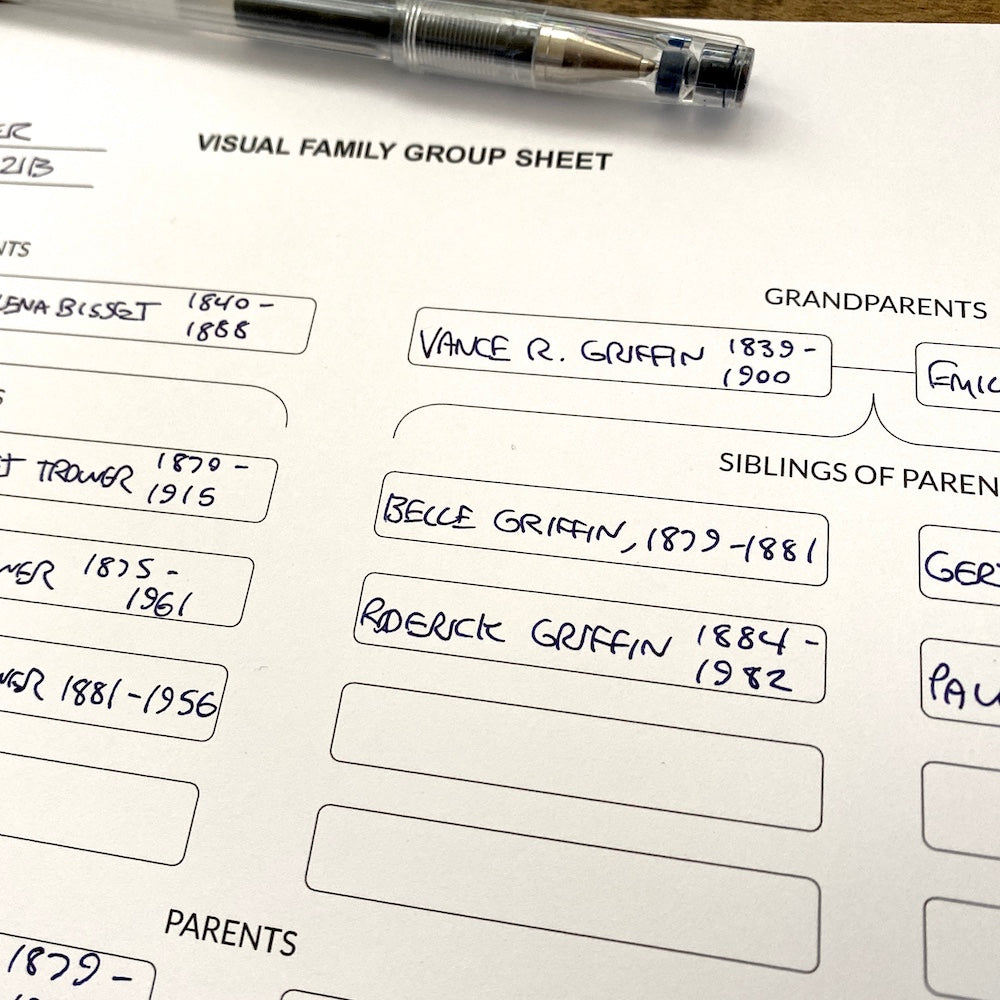 ER
VISUAL FAMILY GROUP SHEET
21B
NTS
GRANDPARENTS
LENA BISSET 1840 -
1888
VANCE R. GRIFFIN 1839 -
1900
EMIL
S
SIBLINGS OF PAREN
ET TROWER 1879 -
1915
BELLE GRIFFIN, 1879-1881
GER
WER 1875 -
1961
RODERICK GRIFFIN 1884 -
1982
PAU
WER 1881-1956
PARENTS
1879 -